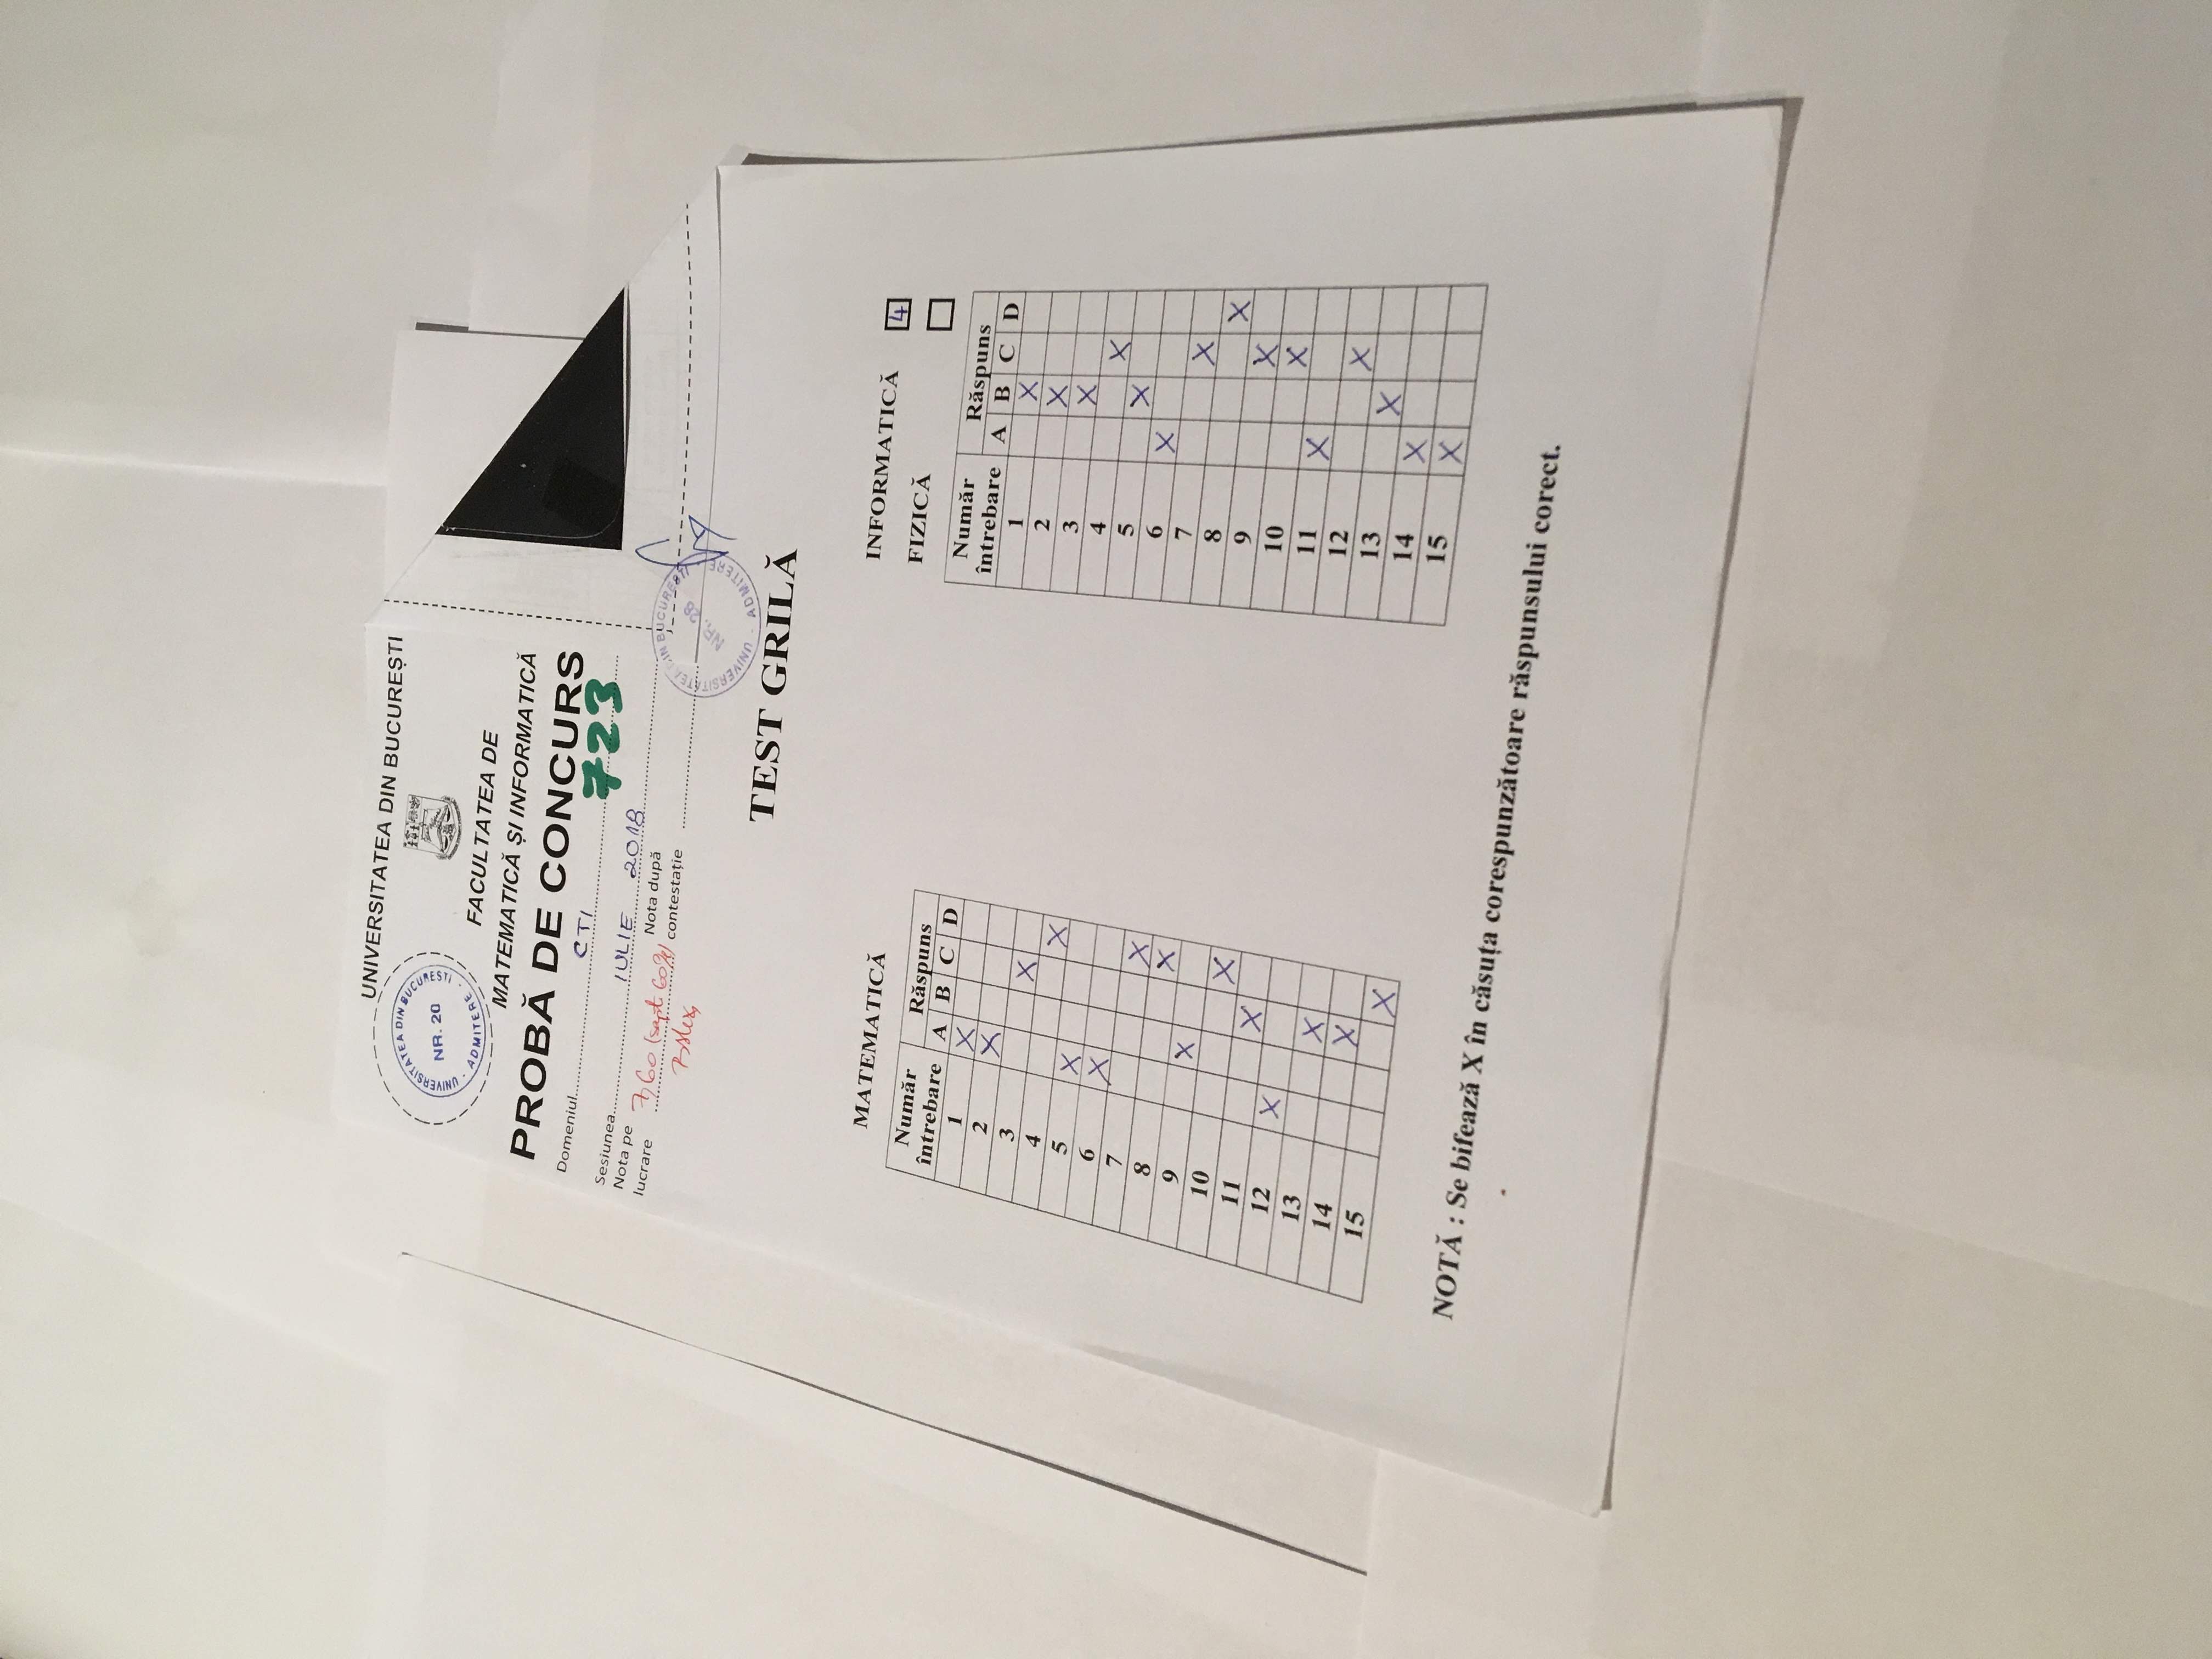 UNIVERSITATEA DIN BUCUREȘTI
UNIVERSITATEA DIN BUCUREȘTI
NR. 20
- ADMITERE -
FACULTATEA DE
MATEMATICĂ ȘI INFORMATICĂ
PROBĂ DE CONCURS
Domeniul CTI
723
Sesiunea IULIE 2018
Nota pe lucrare 7,60 (sapt 60%)
Nota după contestație
UNIVERSITATEA DIN BUCUREȘTI
NR. 28
- ADMITERE
TEST GRILĂ
MATEMATICĂ
Număr întrebare Răspuns
A B C D
1 X
2 X
3 X
4 X
5 X
6 X
7 X
8 X
9 X
10 X
11 X
12 X
13 X
14 X
15 X
INFORMATICĂ 4
FIZICĂ
Număr întrebare Răspuns
A B C D
1 X
2 X
3 X
4 X
5 X
6 X
7 X
8 X
9 X
10 X
11 X
12 X
13 X
14 X
15 X
NOTĂ : Se bifează X în căsuța corespunzătoare răspunsului corect.